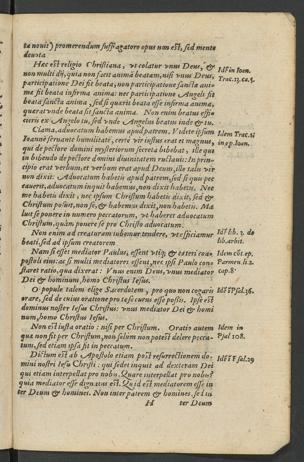 ta nouit) promerendum suffragatore opus non est, sed mente
deuota.
Hæc est religio Christiana, vt colatur vnus Deus, &
non multi dij, quia non facit animā beatam, nisi vnus Deus,
participatione Dei fit beata, non participatione sanctæ ani-
mæ fit beata infirma anima: nec participatione Angeli fit
beata sancta anima, sed si quærit beata esse infirma anima,
quærat vnde beata sit sancta anima. Non enim beatus effi-
cieris ex Angelo tu, sed vnde Angelus beatus inde & tu.
Idē in Ioan.
Trac. 23. ca. 5.
Clama, aduocatum habemus apud patrem. Videte ipsum
Ioannē seruante humilitatē, certè vir iustus erat et magnus,
qui de pectore domini mysteriorum secreta bibebat, ille qui
in bibendo de pectore domini diuinitatem ructauit: In prin-
cipio erat verbum, et verbum erat apud Deum, ille talis vir
non dixit: Aduocatum habetis apud patrem, sed si quis pec
cauerit, aduocatum inquit habemus, non dixit habetis. Nec
me habetis dixit, nec ipsum Christum habetis dixit, sed &
Christum posuit, non se, & habemus dixit, non habetis. Ma
luit se ponere in numero peccatorum, vt haberet aduocatum
Christum, quàm ponere se pro Christo aduocatum.
Idem Trac.
in ep. Ioan.
Non enim ad creaturam iubemur tendere, vt efficiamur
beati, sed ad ipsum creatorem
Idē lib. 3. de
lib. arbit.
Nam si esset mediator Paulus, essent vtiq; & cæteri coa-
postoli eius: ac si multi mediatores essent, nec ipsi Paulo con-
staret ratio, qua dixerat: Vnus enim Deus, vnus mediator
Dei & hominum, homo Christus Iesus.
Idem cōt. ep.
Parmen. li. 2.
cap. 8.
O popule talem elige Sacerdotem, pro quo non cogaris
orare, sed de cuius oratione pro te securus esse possis. Ipse est
dominus noster Iesus Christus: vnus mediator Dei & homi
num, homo Christus Iesus.
Idē ī Psal. 36.
Non est iusta oratio: nisi per Christum. Oratio autem
quæ non fit per Christum, non solum non potest delere pecca-
tum, sed etiam ipsa fit in peccatum.
Idem in
Psal 108.
Dictum est ab Apostolo etiam post resurrectionem do-
mini nostri Iesu Christi: qui sedet inquit ad dexteram Dei
qui etiam interpellat pro nobis. Quare interpellat pro nobis?
quia mediator esse dignatus est. Quid est mediatorem esse in
ter Deum & homines. Non inter patrem & homines, sed in
Idē ī Psal. 29
H
ter Deum